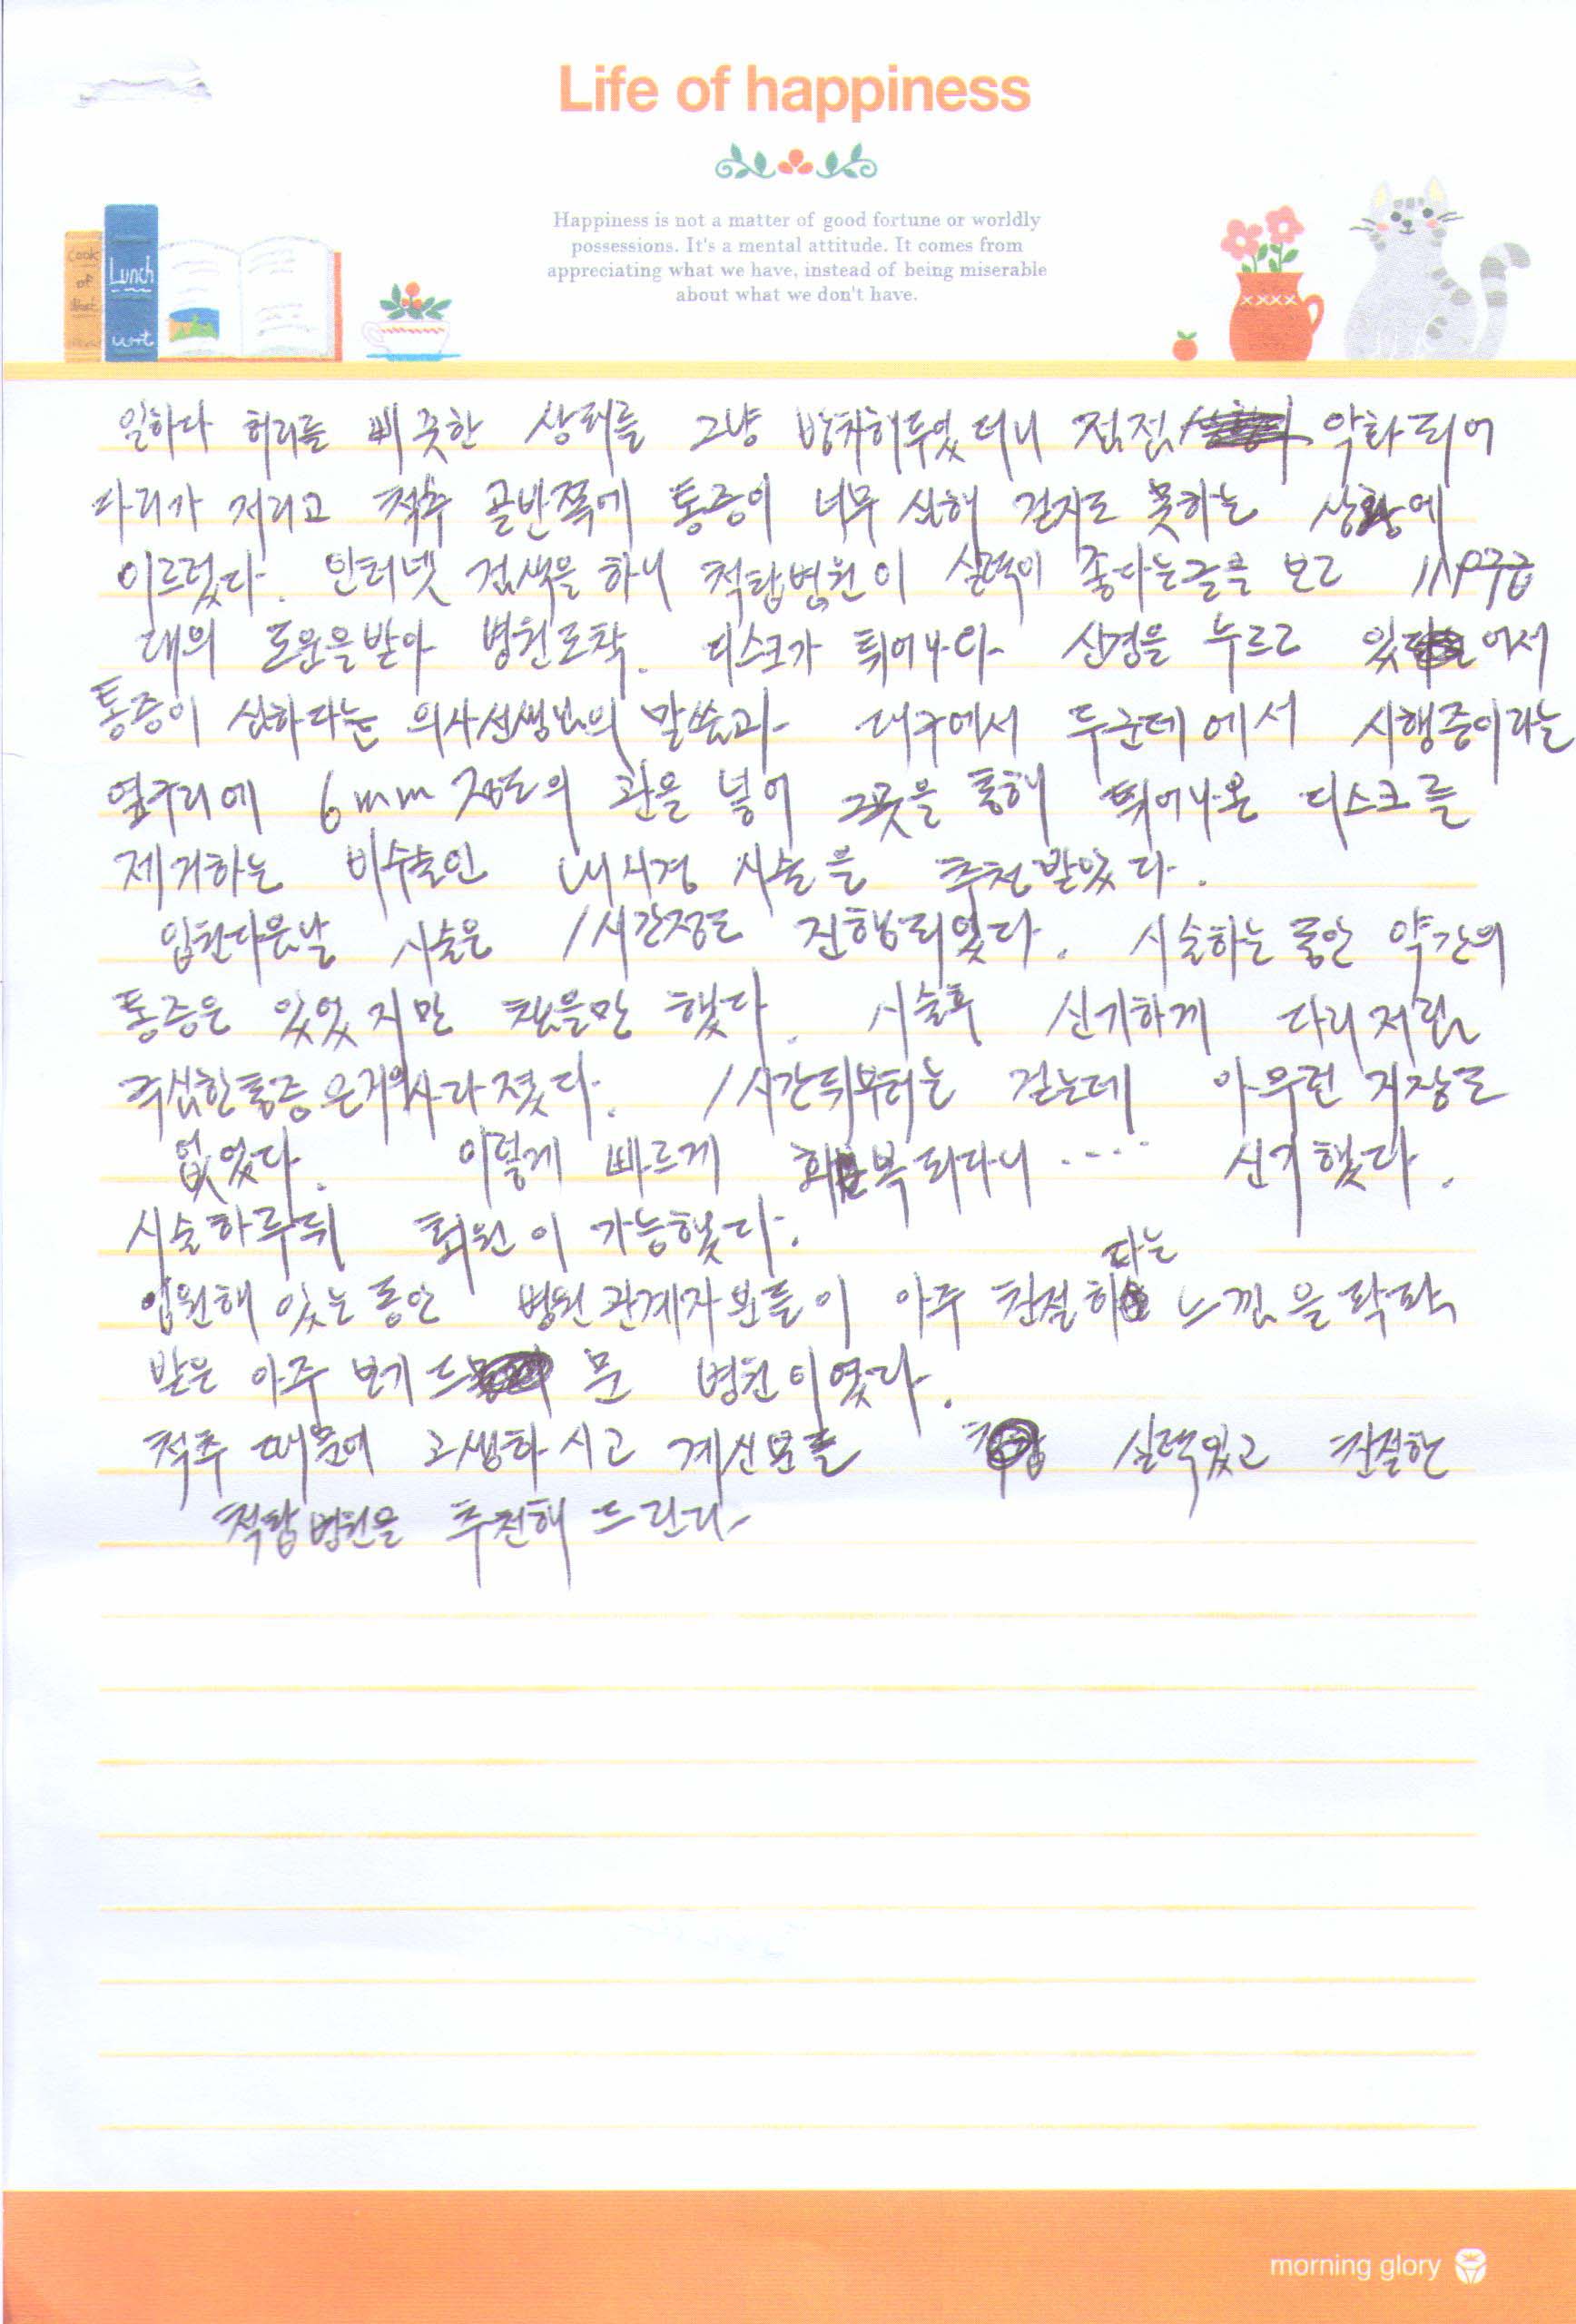 Life of happiness
Happiness is not a matter of good fortune or worldly
possessions. It's a mental attitude. It comes from
appreciating what we have, instead of being miserable
about what we don't have.
Cook
of
Lunch
일하다 허리를 삐끗한 상태를 그냥 방치해두었더니 점점 악화되어
다리가 저리고 척추 골반쪽에 통증이 너무 심해 걷지도 못하는 상황에
이르렀다. 인터넷 검색을 하니 척탑병원이 실력이 좋다는글을 보고 119구급
대의 도움을받아 병원도착. 디스크가 튀어나와 신경을 누르고 있어서
통증이 심하다는 의사선생님의 말씀과 대구에서 두군데에서 시행중이라는
옆구리에 6mm 정도의 관을 넣어 그곳을 통해 튀어나온 디스크를
제거하는 비수술인 내시경 시술을 추천받았다.
입원다음날 시술은 1시간정도 진행되었다. 시술하는 동안 약간의
통증은 있었지만 참을만 했다. 시술후 신기하게 다리저림
극심한통증은거의사라졌다. 1시간뒤부터는 걷는데 아무런 지장도
없었다. 이렇게 빠르게 회복되다니 .... 신기했다.
시술하루뒤 퇴원이 가능했다.
입원해 있는동안 병원관계자분들이 아주 친절하다는 느낌을팍팍
받은 아주 보기드문 병원이였다.
척추 때문에 고생하시고 계신분들 실력있고 친절한
척탑병원을 추천해 드린다
morning glory